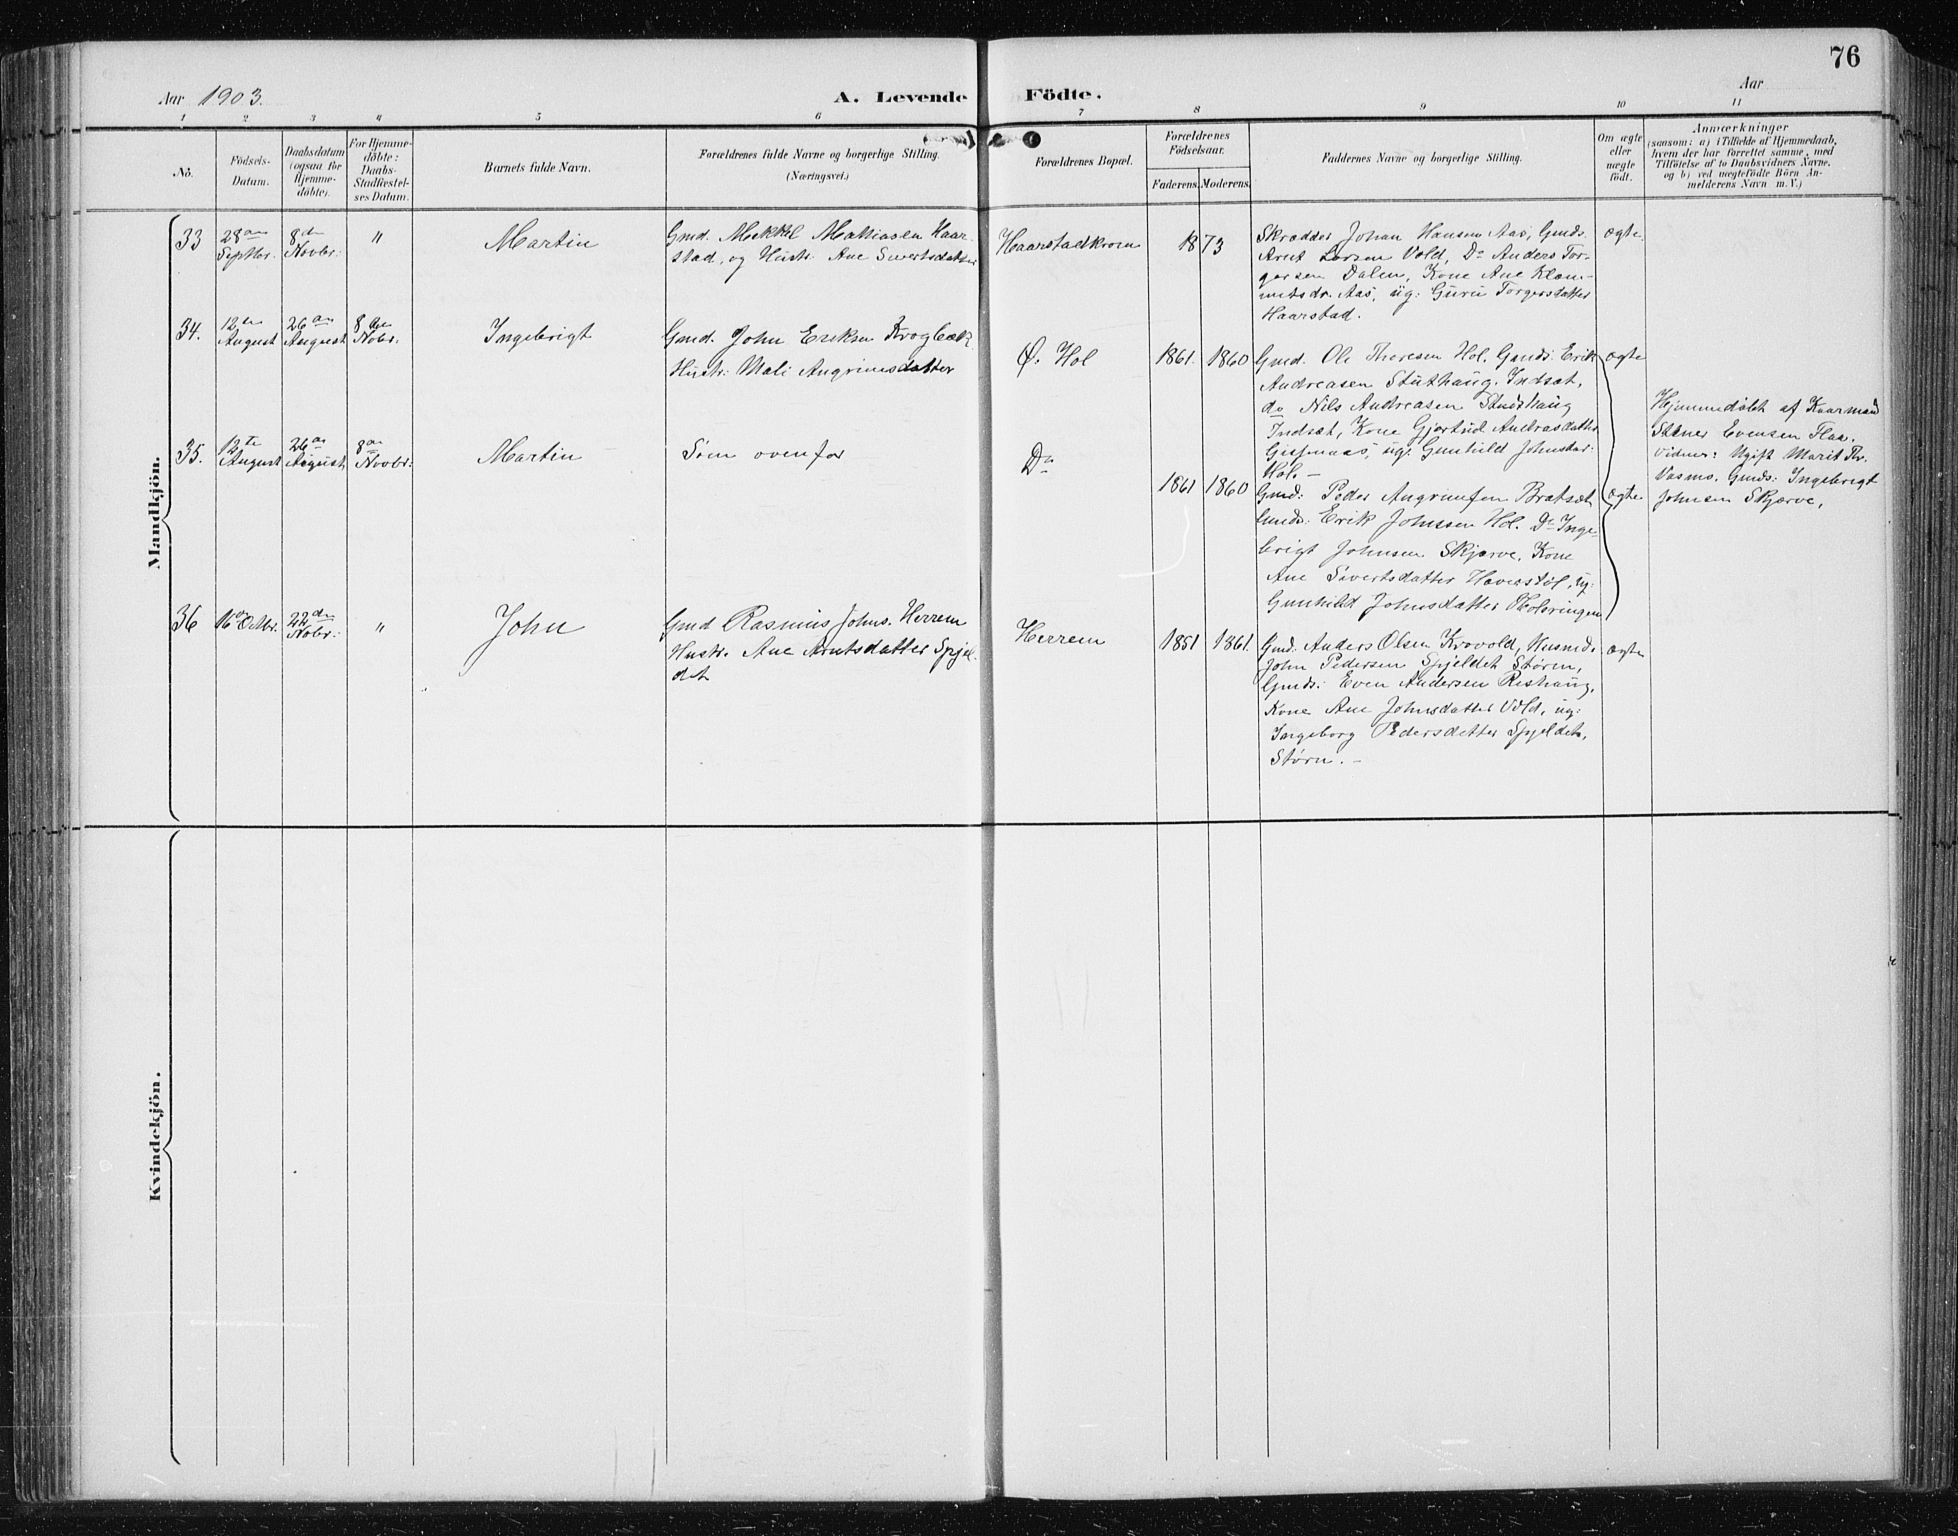 76
Aar 1903.
A. Levende Födte.
Aar
1 2 3 4 5 6 7 8 9 10 11
No.
Födsels-
Datum.
Daabsdatum
(ogsaa for
Hjemme-
döbte).
For Hjemme-
döbte:
Daabs-
Stadfæstel-
ses Datum.
Barnets fulde Navn.
Forældrenes fulde Navne og borgerlige Stilling.
(Næringsvei.)
Forældrenes Bopæl.
Forældrenes
Födselsaar.
Faderens. Moderens.
Faddernes Navne og borgerlige Stilling.
Om ægte
eller
uægte
födt.
Anmærkninger
(saasom: a) i Tilfælde af Hjemmedaab,
hvem der har forrettet samme, med
Tilföielse af to Daabsvidners Navne.
og b) ved uægtefödte Börn An-
melderens Navn m. V.)
Mandkjön.
33
28de
Septbr.
8de
Novbr:
"
Martin
Gmd. Mikkel Mathiasen Haar-
stad, og Hustr: Ane Sivertsdatter
Haarstadkroen
1873
Skrædder Johan Hansen Aas, Gmds.
Arnt Larsen Vold, Do Anders Tor-
gersen Dalen, Kone Ane Klem-
metsdr. Aas, ug: Guru Torgersdatter
Haarstad.
ægte
34.
12te
August
26de
August
8de
Nobr:
Ingebrigt
Gmd. John Eriksen Krogbæk
Hustr: Mali Angrimsdatter
Ø. Hol
1861. 1860
Gmd. Ole Theresen Hol. Gmds: Erik
Andreasen Stuthaug. Indsæt,
do Nils Andreasen Stuthaug
Indsæt, Kone Gjertrud Andrasdatter
ug. Gunhild Johnsdar:
Hol. –
ægte
Hjemmedøbt af Kaarmand
Stener Evensen Flaa.
Vidner: Ugift Marit Th.
Vasmo. Gmds: Ingebrigt
Johnsen Skjærve.
35.
12te
August
26de
August
8de
Novbr:
Martin
Som ovenfor
Do
1861 1860
Gmd: Peder Angrimsen Bratsæt
Gmds: Erik Johnssen Hol. Do Inge-
brigt Johnsen Skjærve. Kone
Ane Sivertsdatter Haverstøl, ug:
Gunhild Johnsdatter Holsringen
ægte
36
16de Octbr.
22de
Nobr:
"
John
Gmd Rasmus Johns. Herrem
Hustr. Ane Arntsdatter Spjel-
det
Herrem
1851 1861.
Gmd. Anders Olsen Krovold, Husmd.
John Pedersen Spjeldet Støren,
Gmds: Even Andersen Rishaug,
Kone Ane Johnsdatter Vold, ug:
Ingeborg Pedersdatter Spjeldet,
Størn. –
ægte
Kvindekjön.